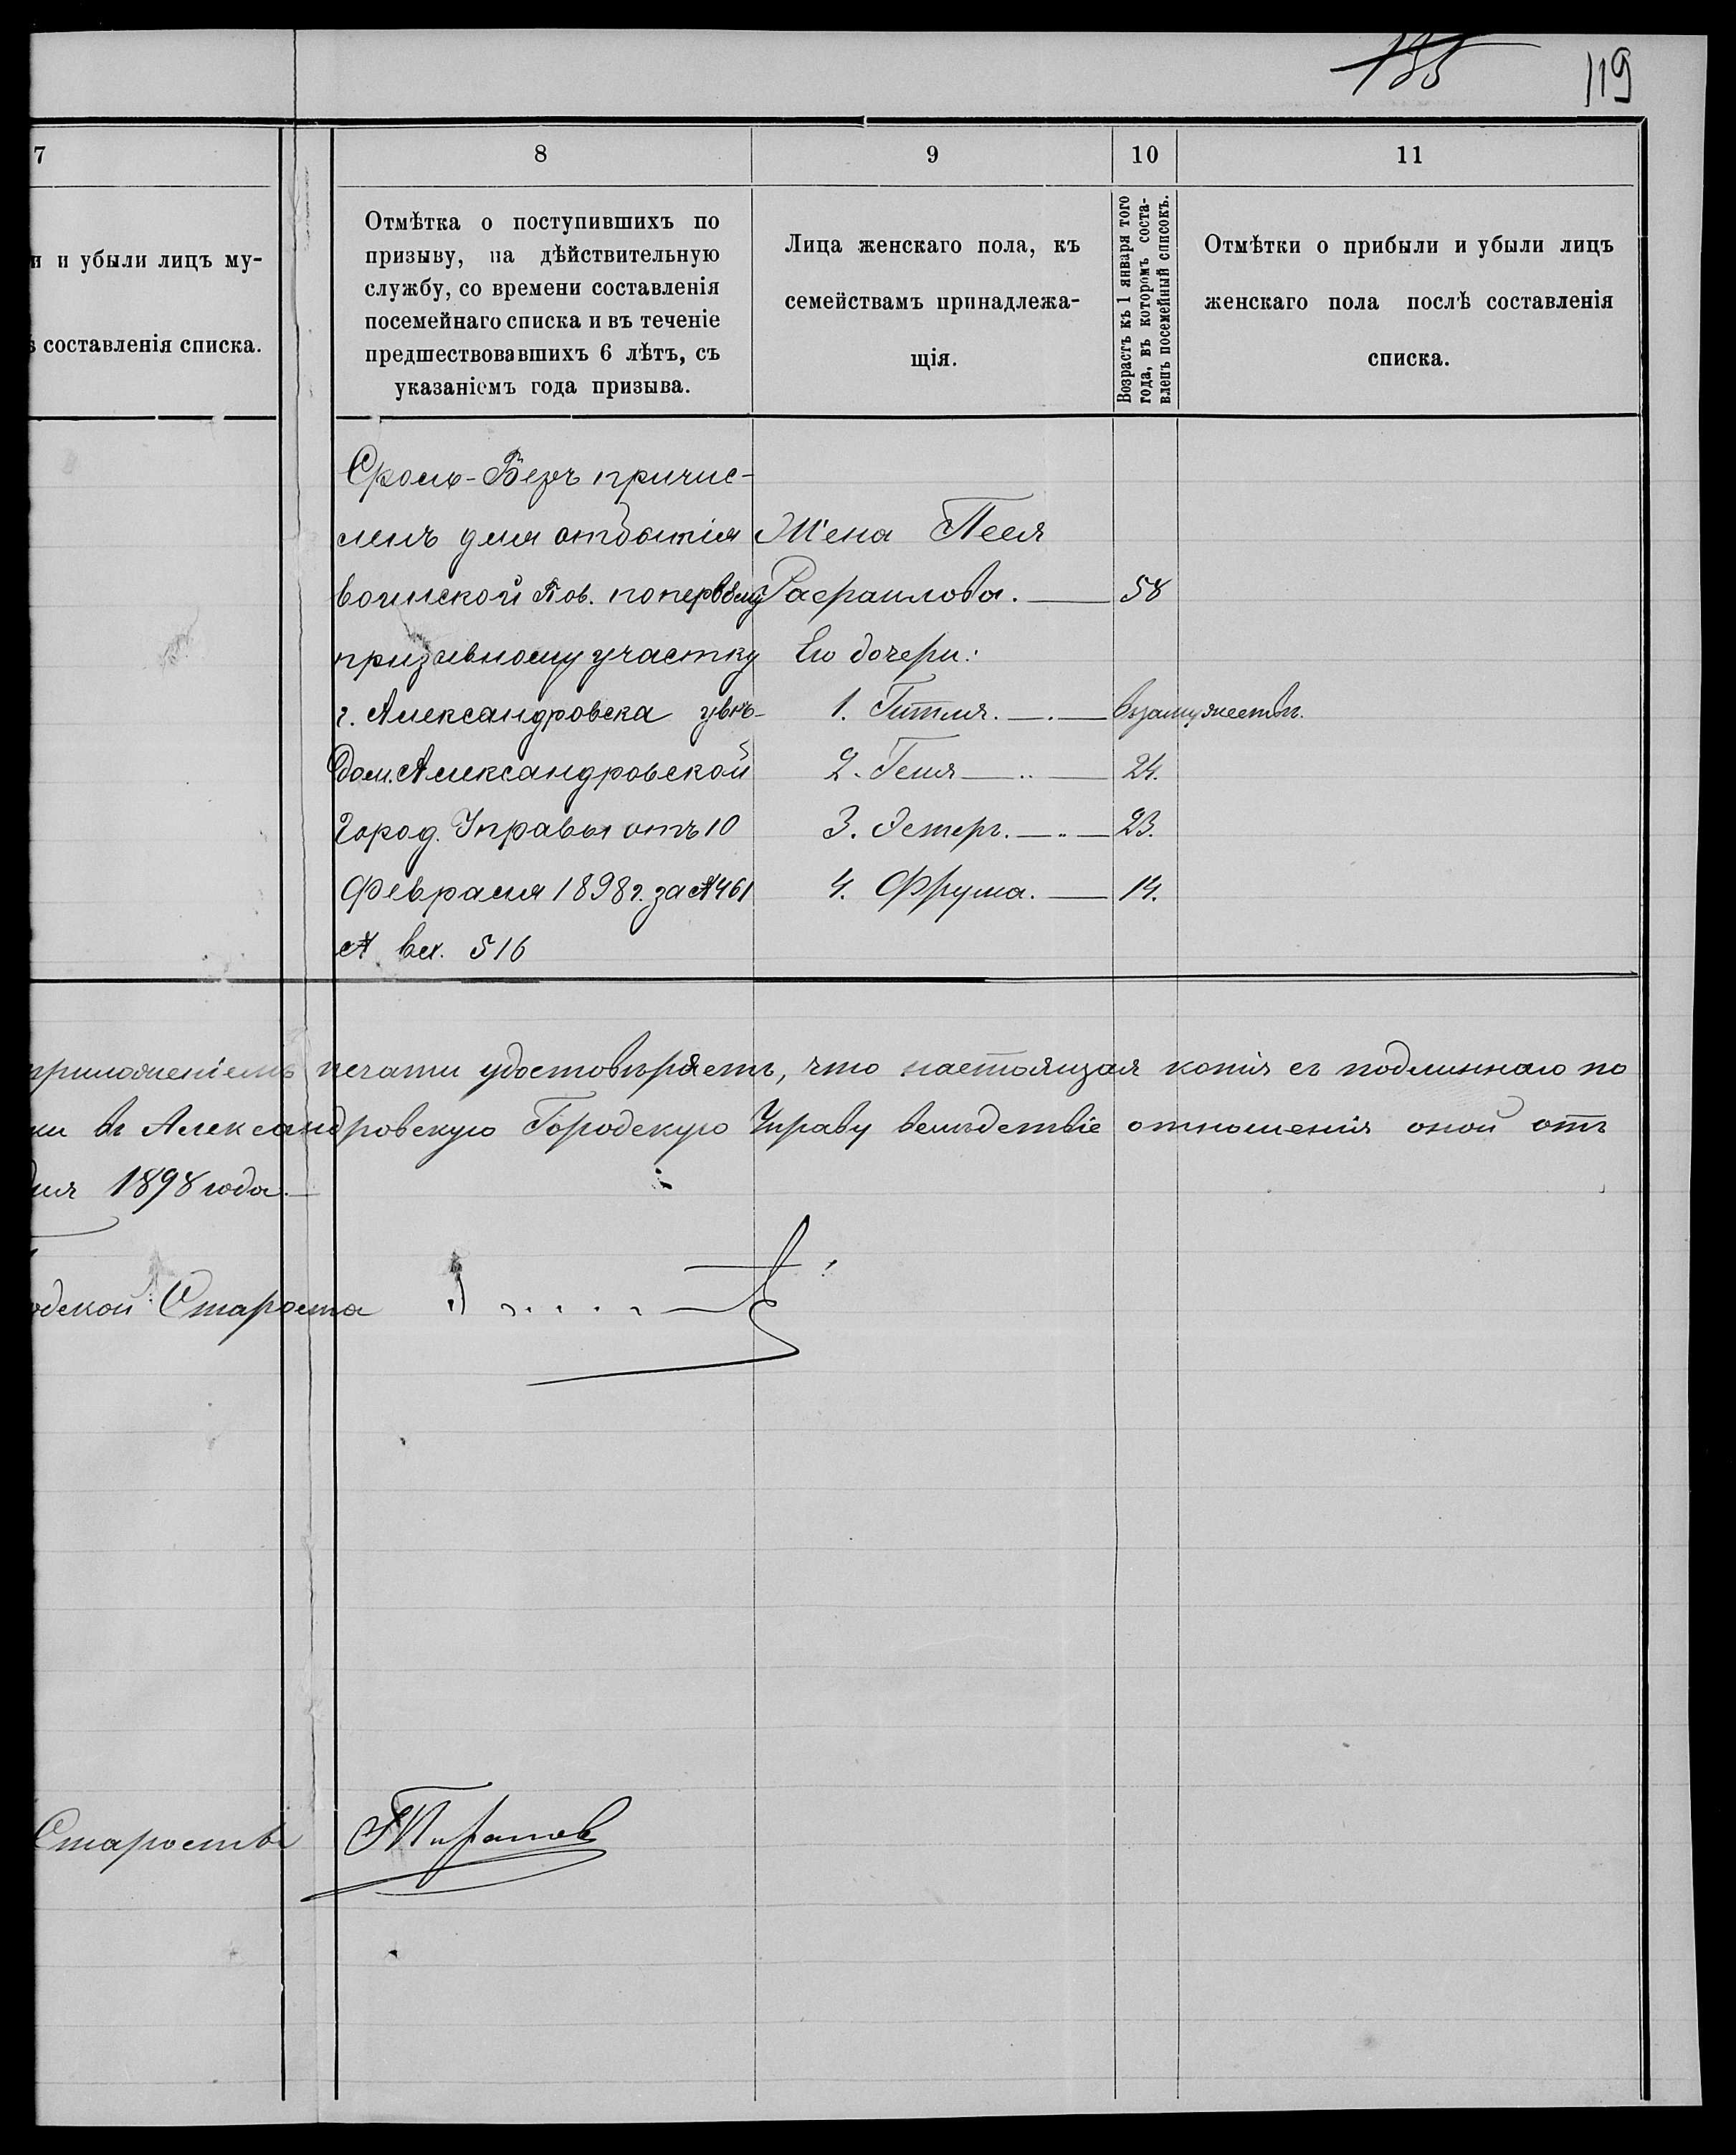 119
7
8
9
10
11
и и убыли лицъ му-
ѣ составленія списка.
Отмѣтка о поступившихъ по
призыву, на дѣйствительную
службу, со времени составленія
посемейнаго списка и въ теченіе
предшествовавшихъ 6 лѣтъ, съ
указаніемъ года призыва.
Лица женскаго пола, къ
семействамъ принадлежа-
щія.
Возрастъ къ 1 января того
года, въ которомъ соста-
вленъ посемейный списокъ.
Отмѣтки о прибыли и убыли лицъ
женскаго пола послѣ составленія
списка.
Сроль-Беръ причис-
ленъ для отбытія
воинской Пов. по первому
призывному участку
г. Александровска увѣ-
дом. Александровской
Город. Управы отъ 10
Февраля 1898 г. за № 461
№ вх. 516
Жена Песя
Рафаилова. 58
Его дочери:
1. Гитля. въ замужествѣ.
2. Геня 24.
3. Эстеръ. 23.
4. Фрума. 14.
приложеніемъ печати удостовѣряетъ, что настоящая копія съ подлиннаго по
ки въ Александровскую Городскую Управу вслѣдствіе отношенія оной отъ
дня 1898 года.
одской Староста
Старостѣ